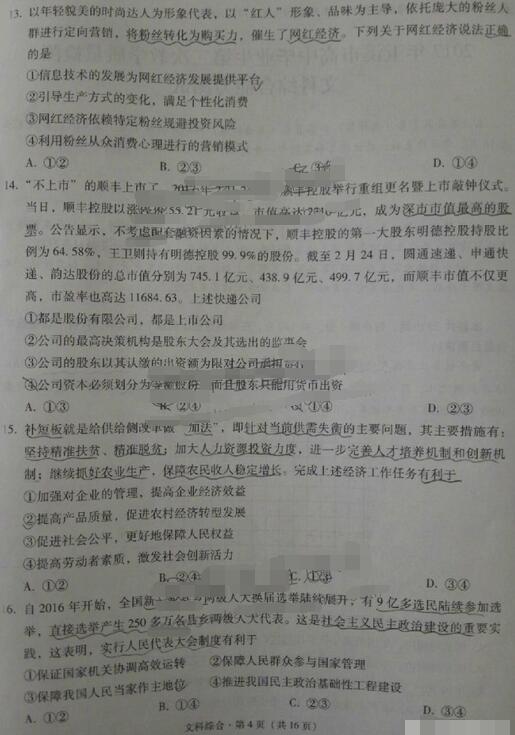 13. 以年轻貌美的时尚达人为形象代表，以“红人”形象、品味为主导，依托庞大的粉丝人
群进行定向营销，将粉丝转化为购买力，催生了网红经济。下列关于网红经济说法正确
的是
①信息技术的发展为网红经济发展提供平台
②引导生产方式的变化，满足个性化消费
③网红经济依赖特定粉丝规避投资风险
④利用粉丝从众消费心理进行的营销模式
A. ①② B. ②③ C. ③④ D. ①④
14. “不上市”的顺丰上市了 顺丰控股举行重组更名暨上市敲钟仪式。
当日，顺丰控股以涨停价55.21元 市值高达 亿元，成为深市市值最高的股
票。公告显示，不考虑配套融资因素的情况下，顺丰控股的第一大股东明德控股持股比
例为64.58%，王卫则持有明德控股99.9%的股份。截至2月24日，圆通速递、申通快
递、韵达股份的总市值分别为745.1亿元、438.9亿元、499.7亿元，而顺丰市值不仅更
高，市盈率也高达11684.63。上述快递公司
①都是股份有限公司，都是上市公司
②公司的最高决策机构是股东大会及其选出的监事会
③公司的股东以其认缴的出资额为限对公司承担
④公司资本必须划分为等额股份 而且股东只能用货币出资
A. ①③ B. ②④ C. ①④ D. ②③
15. 补短板就是给供给侧改革做“加法”，即针对当前供需失衡的主要问题，其主要措施有：
坚持精准扶贫、精准脱贫；加大人力资源投资力度，进一步完善人才培养机制和创新机
制；继续抓好农业生产，保障农民收入稳定增长。完成上述经济工作任务有利于
①加强对企业的管理，提高企业经济效益
②提高产品质量，促进农村经济转型发展
③促进社会公平，更好地保障人民权益
④提高劳动者素质，激发社会创新活力
A. ①② B. ②④ C. ①③ D. ③④
16. 自2016年开始，全国新一 两级人大换届选举陆续展开，有9亿多选民陆续参加选
举，直接选举产生250多万名县乡两级人大代表。这是社会主义民主政治建设的重要实
践，这表明，实行人民代表大会制度有利于
①保证国家机关协调高效运转 ②保障人民群众参与国家管理
③保障我国人民当家作主地位 ④推进我国民主政治基础性工程建设
A. ①② B. ①④ C. ②③ D. ③④
文科综合·第4页（共16页）